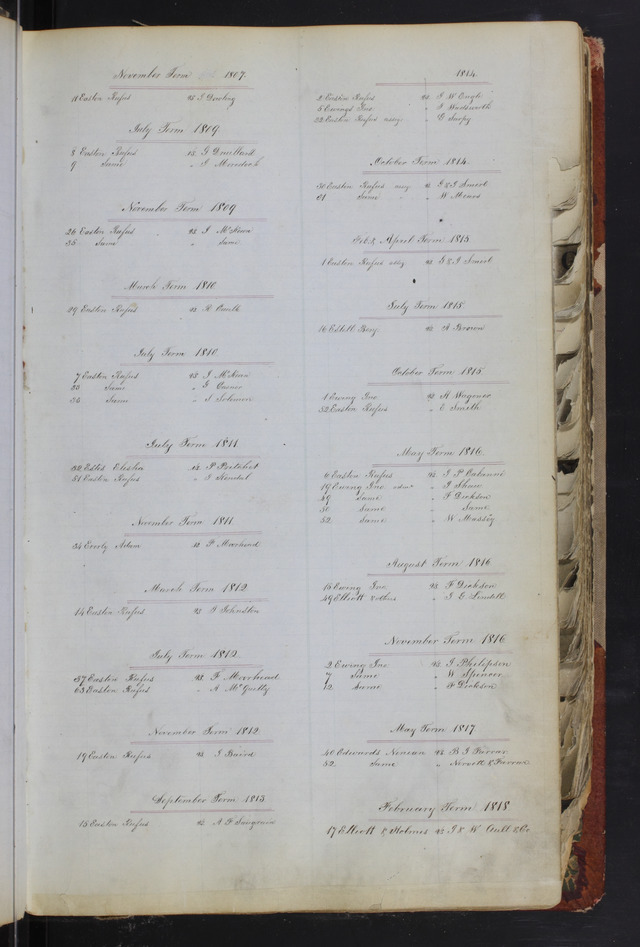 November Term 1807.
11 Easton Rufus vs. J Dowling
July Term 1809.
8 Easton Rufus vs. G Druillard
9 Same " J Murdoch
November Term 1809
26 Easton Rufus vs. J McKean
35 Same " Same
March Term 1810
29 Easton Rufus vs R Caulk
July Term 1810.
7 Easton Rufus vs. J McKean
33 Same "
36 Same " J Solomon
July Term 1811
32 Estes Elisha vs. P Portelict
51 Easton Rufus " J Kendal
November Term 1811.
34 Everly Adam vs P Moorhead
March Term 1812
14 Easton Rufus vs J Johnston
July Term 1812.
37 Easton Rufus vs. F Moorhead
63 Easton Rufus " A McGully
November Term 1812.
19 Easton Rufus vs. J Baird
September Term 1813
15 Easton Rufus vs. A F Saugrain
1814.
2 Easton Rufus vs. J W Engle
5 Ewings Inc " J Wadsworth
23 Easton Rufus assg " G Sarpy
October Term 1814.
30 Easton Rufus assg vs G & J Smirl
31 Same " W Mears
Feb & April Term 1815
1 Easton Rufus assg vs G & J Smirl
July Term 1815.
16 Estill Benj vs. A Brown
October Term 1815.
1 Ewing Inc vs. A Wagoner
32 Easton Rufus " E Smith
May Term 1816
6 Easton Rufus vs. J P Cabanne
19 Ewing Inc " J Shaw
49 Same " F Dickson
50 Same " Same
52 Same " W Massey
August Term 1816
15 Ewing Inc vs. F Dickson
49 Elliott & others " J E Lindell
November Term 1816
2 Ewing Inc vs. J Philipson
7 Same " W Spencer
12 Same " F Dickson
May Term 1817
40 Edwards Ninian vs B J Farrar
52 Same " & Farrar
February Term 1818
17 Elliott & Holmes vs J & W Aull & Co